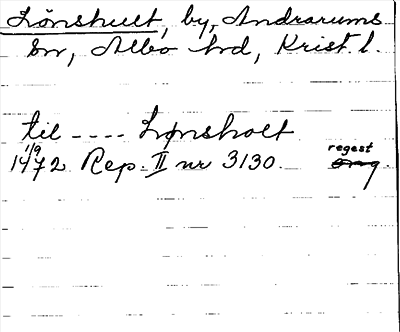 Lönshult, by, Andrarums
sn, Albo hd, Krist. l.
til ---- Lønsholt
1/9 1472 Rep. II nr 3130. regest orig.